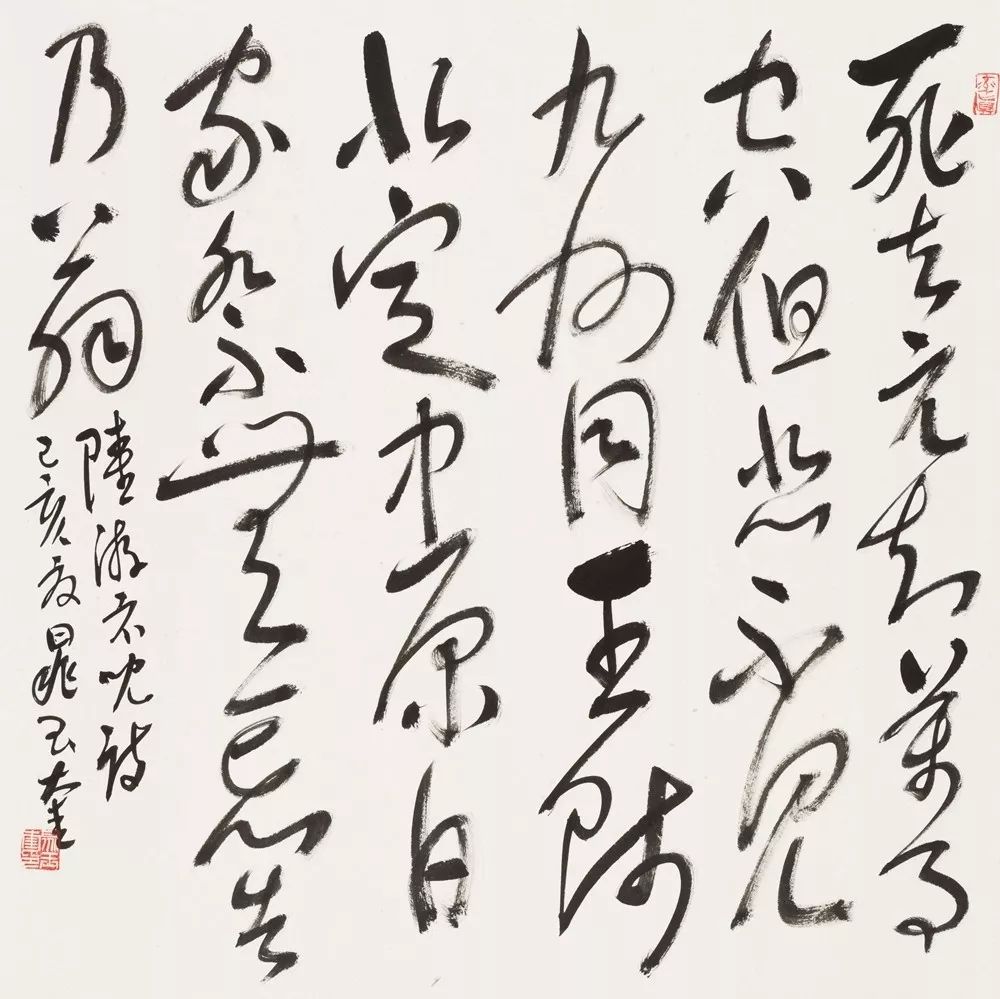 死去元知萬事
空但悲不見
九州同王師
北定中原日
家祭無忘告
乃翁
陸游示兒詩
己亥夏晁玉奎